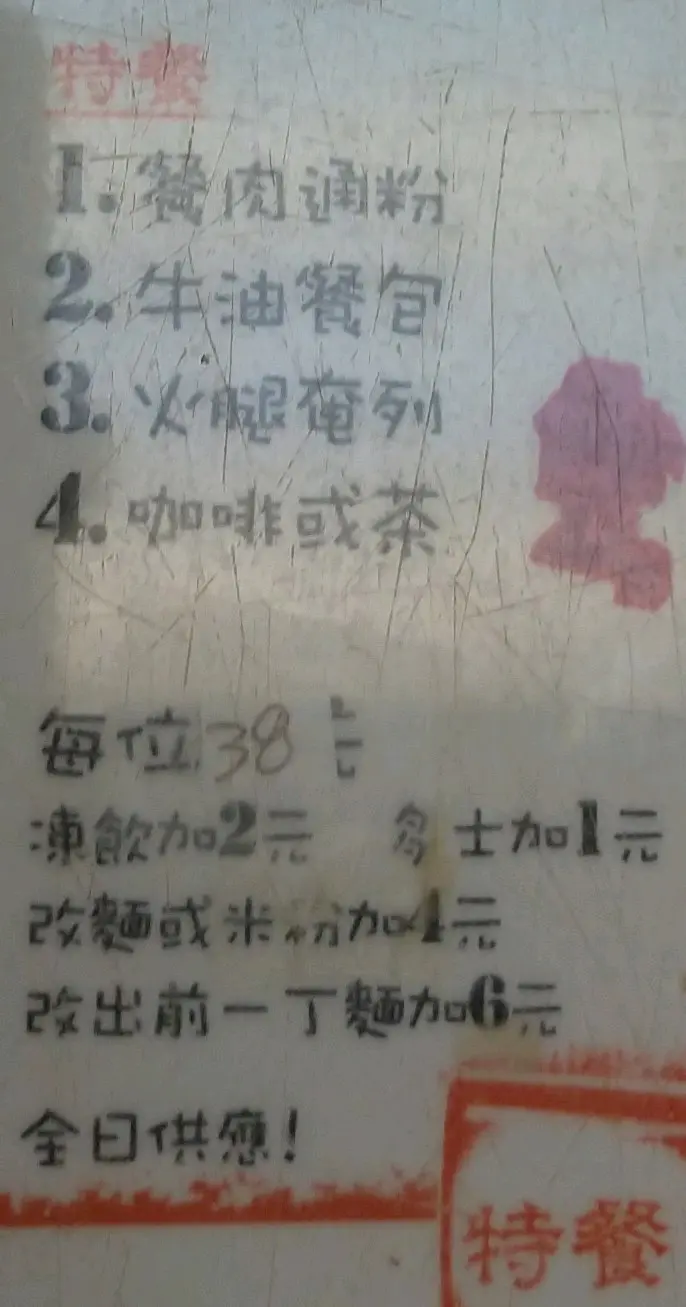 特餐
1. 餐肉通粉
2. 牛油餐包
3. 火腿奄列
4. 咖啡或茶
每位38元
凍飲加2元 多士加1元
改麵或米粉加4元
改出前一丁麵加6元
全日供應!
特餐